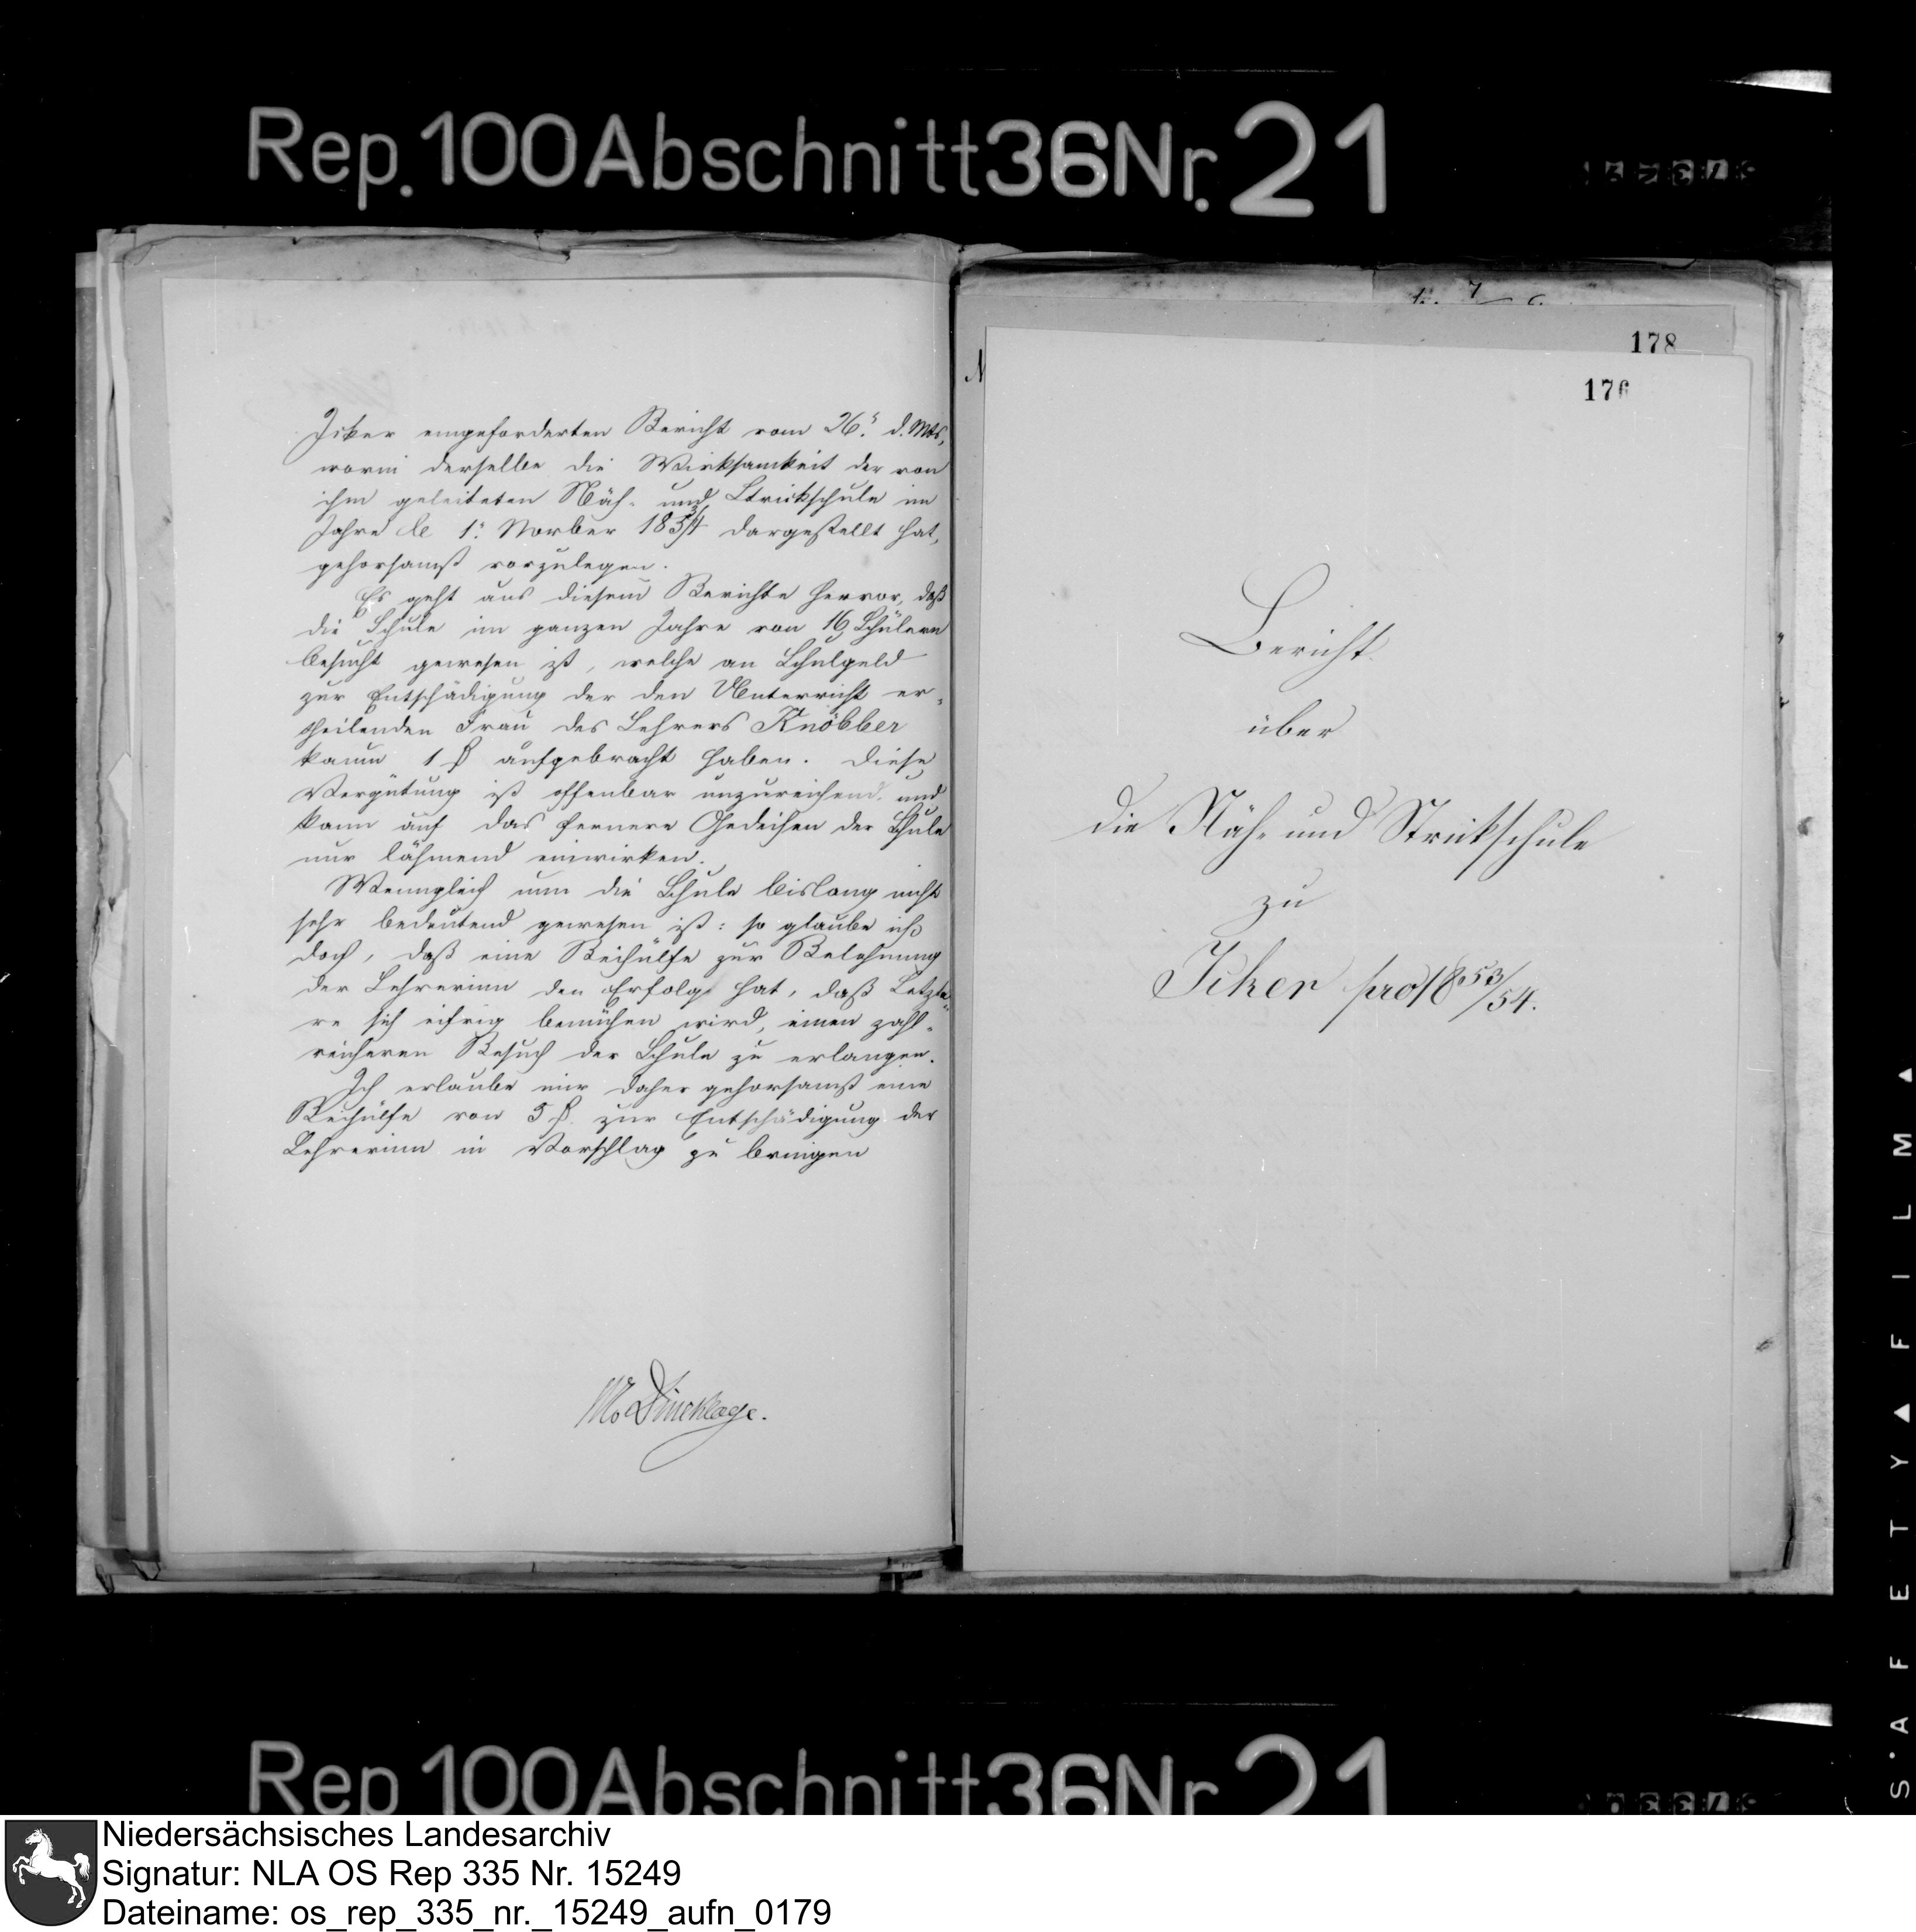 Rep. 100 Abschnitt 36 Nr. 21
Icker eingeforderten Bericht vom 26. d. Mts,
worin derselbe die Wirksamkeit der von
ihm geleiteten Näh- und Strickschule im
Jahre 1. Novber 1853/4 dargestellt hat,
gehorsamst vorzulegen.
Es geht aus diesem Berichte hervor, daß
die Schule im ganzen Jahre von 16 Schülern
besucht gewesen ist, welche an Schulgeld
zur Entschädigung der den Unterricht er-
theilenden Frau des Lehrers Knöbber
kaum 1 ₰ aufgebracht haben. Diese
Vergütung ist offenbar unzureichend und
kann auf das fernere Gedeihen der Schule
nur lähmend einwirken.
Wenngleich nun die Schule bislang nicht
sehr bedeutend gewesen ist: so glaube ich
doch, daß eine Beihülfe zur Belohnung
der Lehrerinn den Erfolg hat, daß Letzte-
re sich eifrig bemühen wird, einen zahl-
reicheren Besuch der Schule zu erlangen.
Ich erlaube mir daher gehorsamst eine
Beihülfe von 5 ₰ zur Entschädigung der
Lehrerinn in Vorschlag zu bringen
Dincklage.
178
176
Bericht
über
die Näh- und Strickschule
zu
Icker pro 1853/54.
SAFETY▲FILM▲
Rep 100 Abschnitt 36 Nr 21
Niedersächsisches Landesarchiv
Signatur: NLA OS Rep 335 Nr. 15249
Dateiname: os_rep_335_nr._15249_aufn_0179